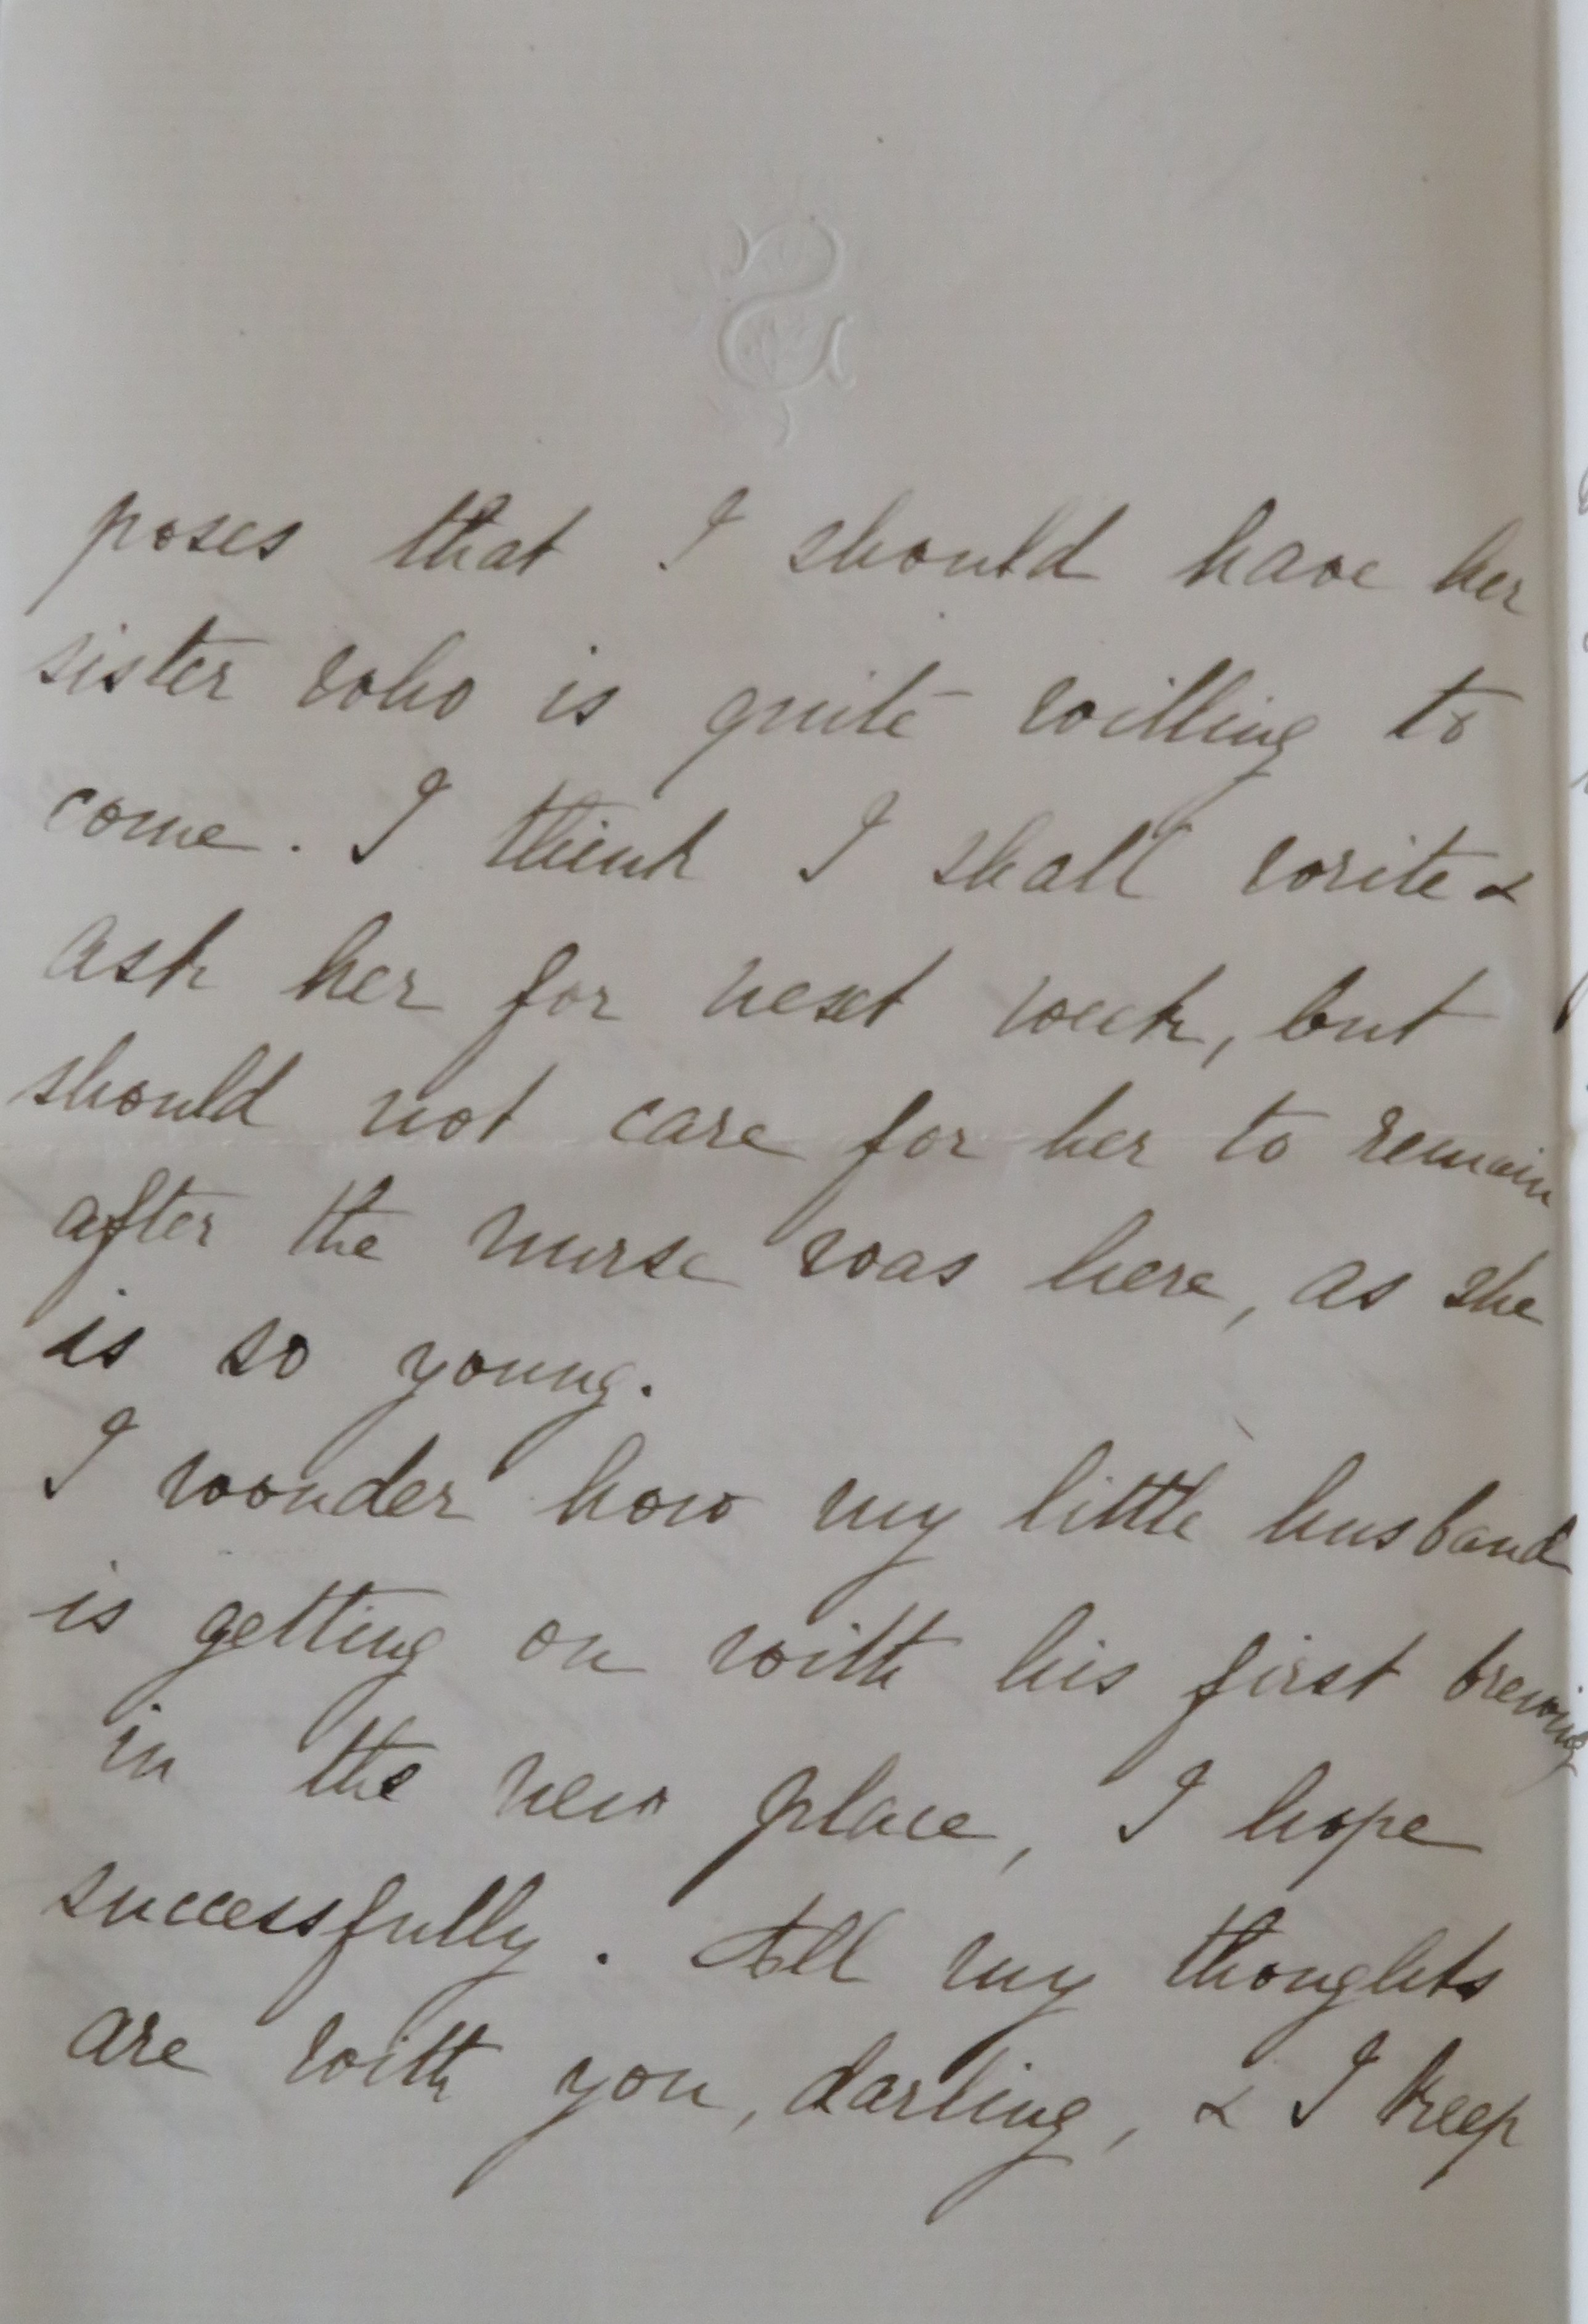 poses that I should have her
sister who is quite willing to
come. I think I shall write &
ask her for next week, but
should not care for her to remain
after the nurse was here, as she
is so young.
I wonder how my little husband
is getting on with his first brewing
in the new place, I hope
successfully. All my thoughts
are with you, darling, & I keep